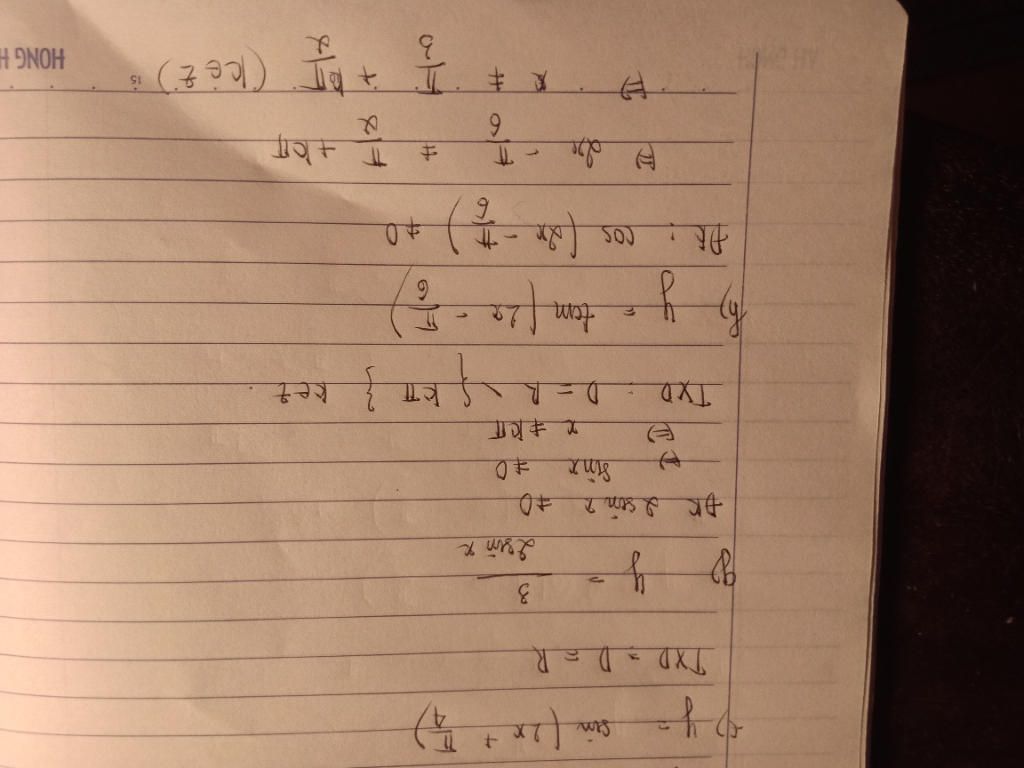 c) y = sin (2x + π/4)
TXD = D = R
g) y = 3/2sin x
ĐK 2sin x ≠ 0
⇔ sin x ≠ 0
⇔ x ≠ kπ
TXD : D = R \ { kπ } k∈Z.
h) y = tan (2x - π/6)
ĐK : cos (2x - π/6) ≠ 0
⇔ 2x - π/6 ≠ π/2 + kπ
⇔ x ≠ π/3 + kπ/2 (k∈Z)
HONG H